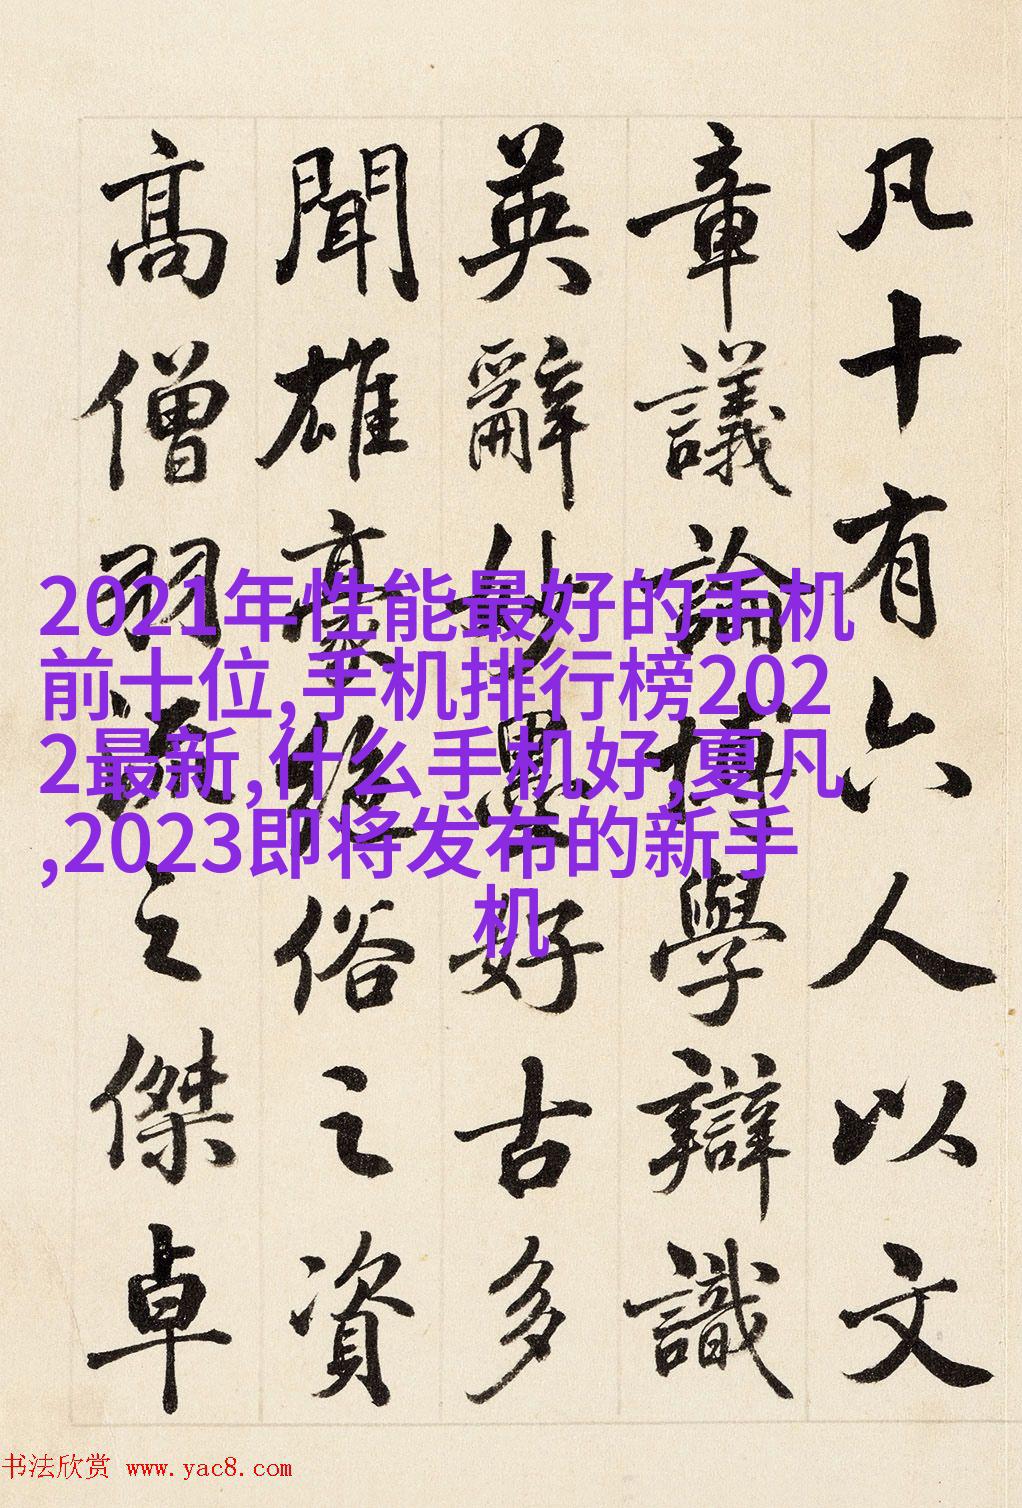 凡十有六人以文
章議論博學辯識
英辭妙墨好古多
聞雄豪絕俗之資
高僧羽流之傑卓
2021年性能最好的手机
前十位,手机排行榜202
2最新,什么手机好,夏凡
,2023即将发布的新手
机
书法欣赏 www.yac8.com